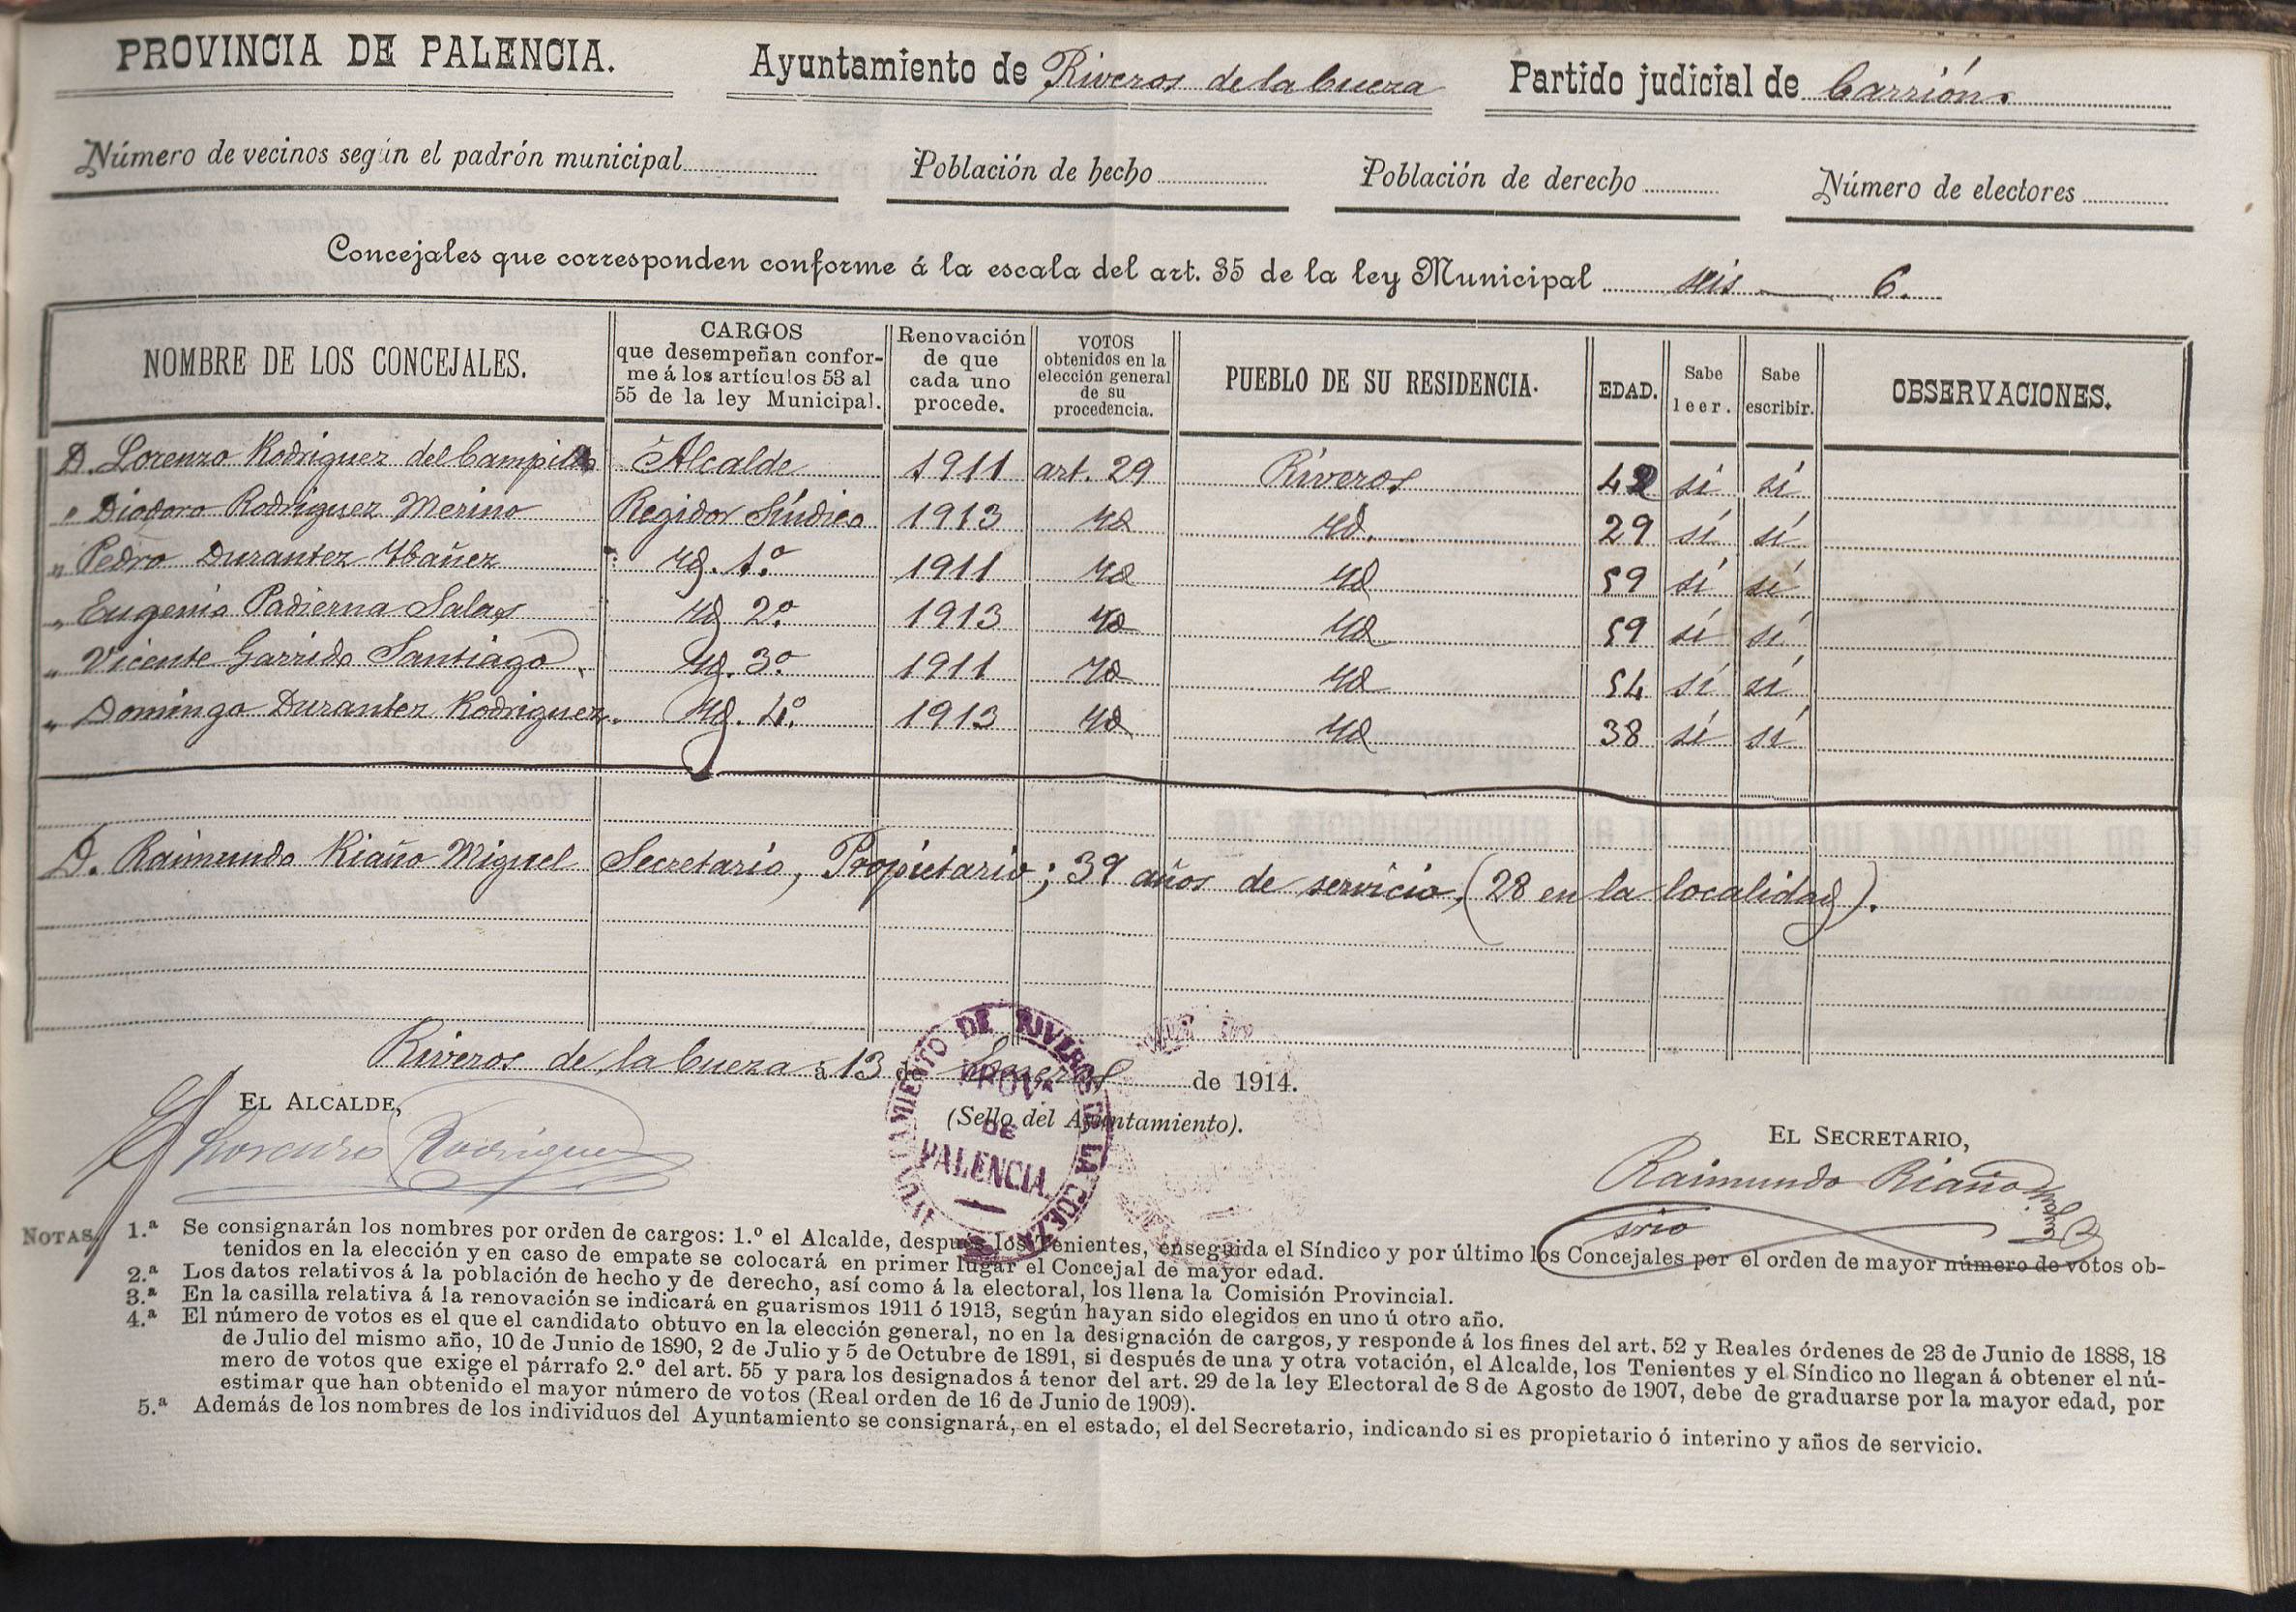 PROVINCIA DE PALENCIA. Ayuntamiento de Riveros de la Cueza Partido judicial de Carrión.
Número de vecinos según el padrón municipal Población de hecho Población de derecho Número de electores
Concejales que corresponden conforme á la escala del art. 35 de la ley Municipal seis 6.
NOMBRE DE LOS CONCEJALES.
CARGOS
que desempeñan confor-
me á los artículos 53 al
55 de la ley Municipal.
Renovación
de que
cada uno
procede.
VOTOS
obtenidos en la
elección general
de su
procedencia.
PUEBLO DE SU RESIDENCIA.
EDAD.
Sabe
leer.
Sabe
escribir.
OBSERVACIONES.
D. Lorenzo Rodriguez del Campillo Alcalde 1911 art. 29 Riveros 42 sí sí
" Diodoro Rodriguez Merino Regidor Síndico 1913 Yd Yd. 29 sí sí
" Pedro Durantez Ybañez Yd. 1.º 1911 Yd Yd 59 sí sí
" Eugenio Padierna Salas Yd 2.º 1913 Yd Yd 59 sí sí
" Vicente Garrido Santiago Yd. 3.º 1911 Yd Yd 54 sí sí
" Domingo Durantez Rodriguez. Yd. 4.º 1913 Yd Yd 38 sí sí
D. Raimundo Riaño Miguel Secretario, Propietario; 39 años de servicio, (28 en la localidad).
Riveros de la Cueza á 13 de Enero de 1914.
EL ALCALDE,
Lorenzo Rodriguez
(Sello del Ayuntamiento).
AYUNTAMIENTO DE RIVEROS DE LA CUEZA
PROVª
DE
PALENCIA.
EL SECRETARIO,
Raimundo Riaño
srio
NOTAS 1.ª Se consignarán los nombres por orden de cargos: 1.º el Alcalde, despues los Tenientes, enseguida el Síndico y por último los Concejales por el orden de mayor número de votos ob-
tenidos en la elección y en caso de empate se colocará en primer lugar el Concejal de mayor edad.
2.ª Los datos relativos á la población de hecho y de derecho, así como á la electoral, los llena la Comisión Provincial.
3.ª En la casilla relativa á la renovación se indicará en guarismos 1911 ó 1913, según hayan sido elegidos en uno ú otro año.
4.ª El número de votos es el que el candidato obtuvo en la elección general, no en la designación de cargos, y responde á los fines del art. 52 y Reales órdenes de 23 de Junio de 1888, 18
de Julio del mismo año, 10 de Junio de 1890, 2 de Julio y 5 de Octubre de 1891, si después de una y otra votación, el Alcalde, los Tenientes y el Síndico no llegan á obtener el nú-
mero de votos que exige el párrafo 2.º del art. 55 y para los designados á tenor del art. 29 de la ley Electoral de 8 de Agosto de 1907, debe de graduarse por la mayor edad, por
estimar que han obtenido el mayor número de votos (Real orden de 16 de Junio de 1909).
5.ª Además de los nombres de los individuos del Ayuntamiento se consignará, en el estado, el del Secretario, indicando si es propietario ó interino y años de servicio.